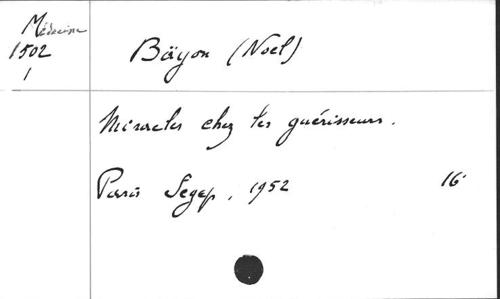 Médecine
1502
1
Bäyon (Noel)
Miracles chez les guérisseurs.
Paris Segep, 1952 16°